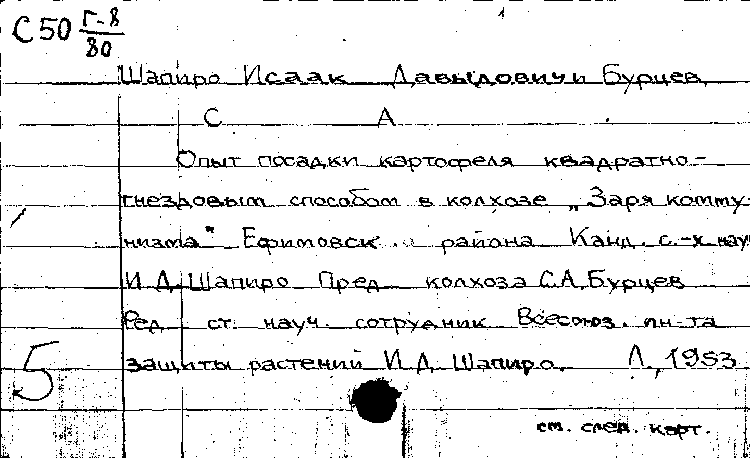 С50 Г-8/80
Шапиро Исаак Давыдович и Бурцев
С А
Опыт посадки картофеля квадратно-
гнездовым способом в колхозе „Заря комму-
низма" Ефимовск. района Канд. с.-х. наук
И. Д. Шапиро Пред колхоза С.А. Бурцев
Ред ст. науч. сотрудник Всесоюз. ин-та
защиты растений И.Д. Шапиро. Л., 1953
5
см. след. карт.